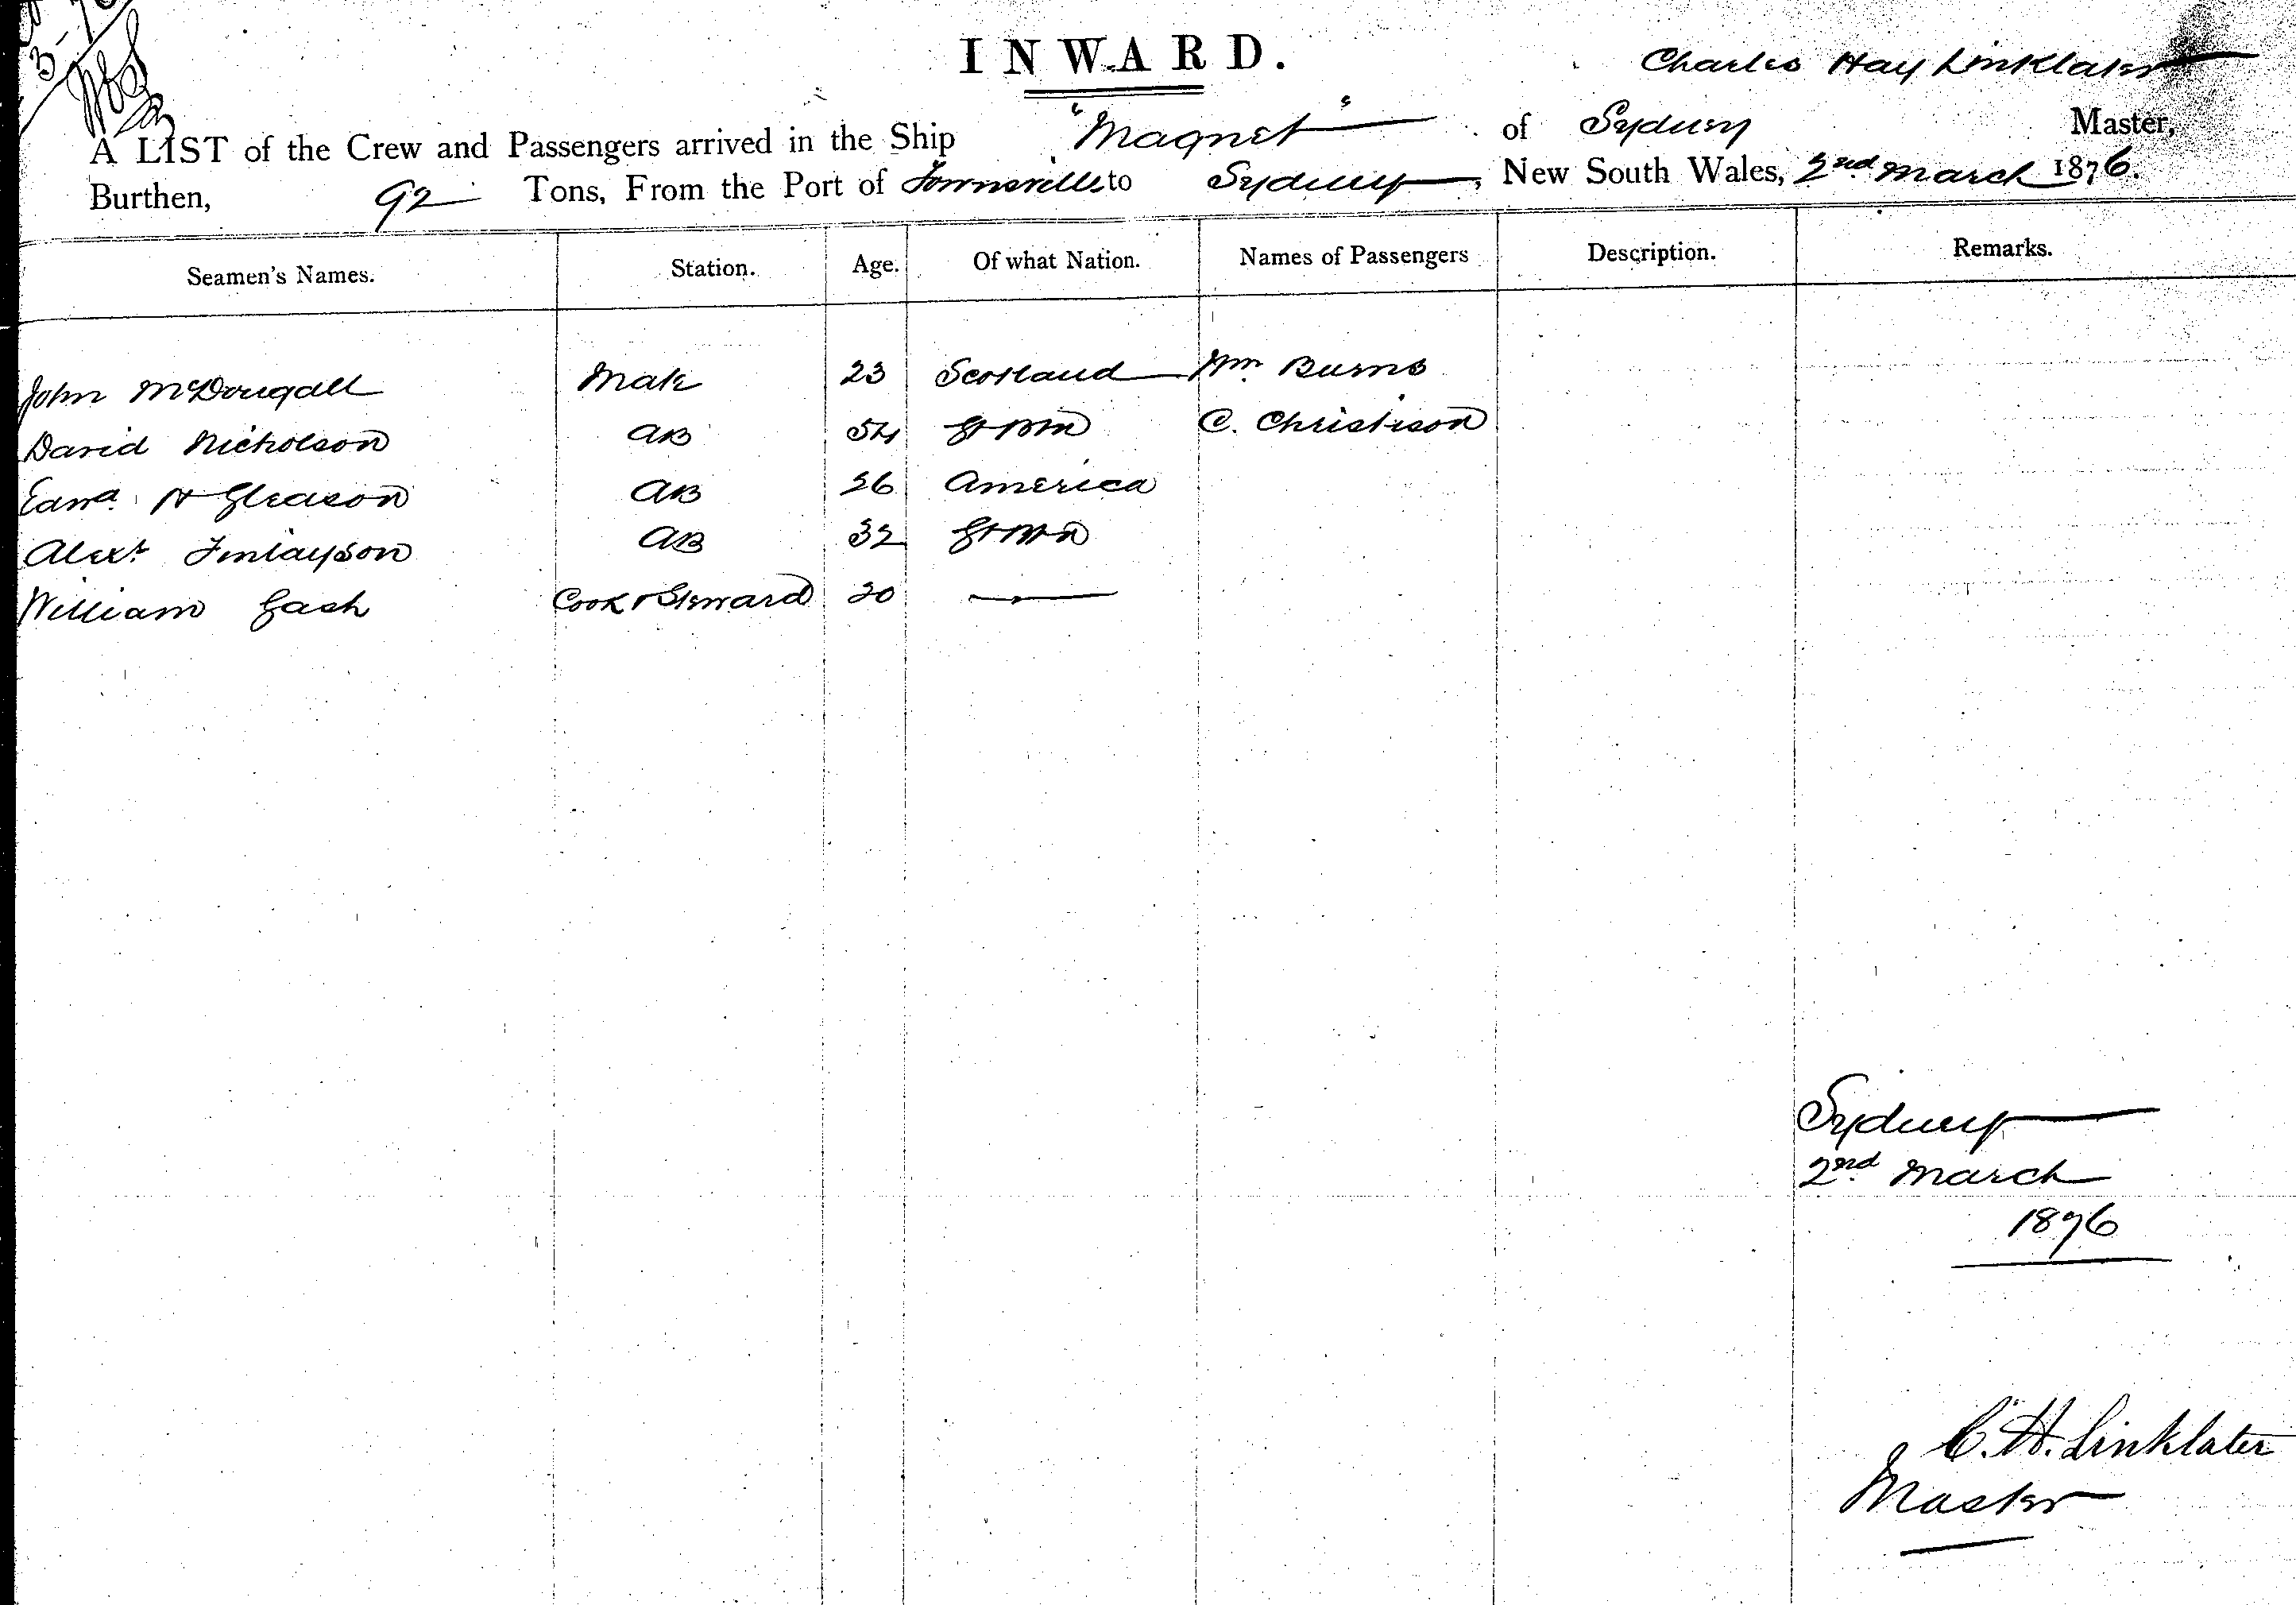 INWARD.
Charles Hay Linklater
A LIST of the Crew and Passengers arrived in the Ship "Magnet" of Sydney Master,
Burthen, 92 Tons, From the Port of Townsville to Sydney, New South Wales, 2nd March 1876.
Seamen's Names. Station. Age. Of what Nation. Names of Passengers Description. Remarks.
John McDougall Mate 23 Scotland Wm Burns
David Nicholson AB 54 Gt Btn C. Christison
Edwd H Gleason AB 36 America
Alexr Finlayson AB 32 Gt Btn
William Gash Cook & Steward 20
Sydney
2nd March
1876
C. H. Linklater
Master